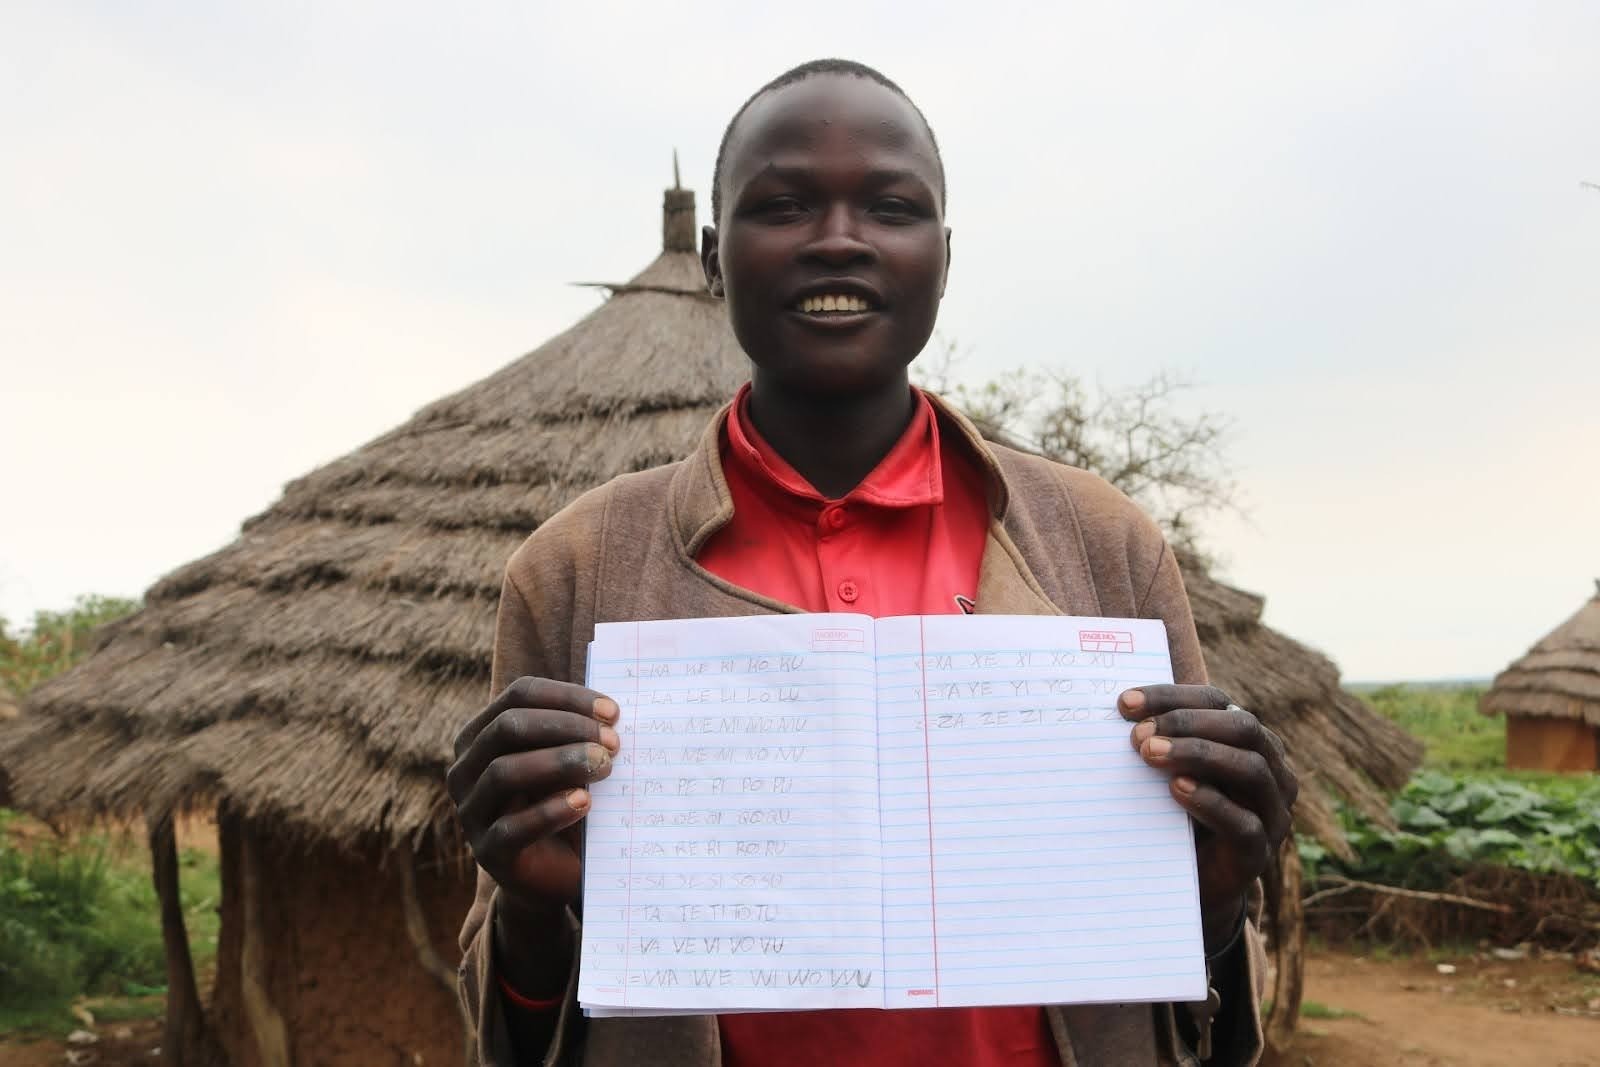 PAGE NO:
K = KA KE KI KO KU
L = LA LE LI LO LU
M = MA ME MI MO MU
N = NA NE NI NO NU
P = PA PE PI PO PU
Q = QA QE QI QO QU
R = RA RE RI RO RU
S = SA SE SI SO SU
T = TA TE TI TO TU
V V = VA VE VI VO VU
V
W = WA WE WI WO WU
PAGE NO:
X = XA XE XI XO XU
Y = YA YE YI YO YU
Z = ZA ZE ZI ZO Z